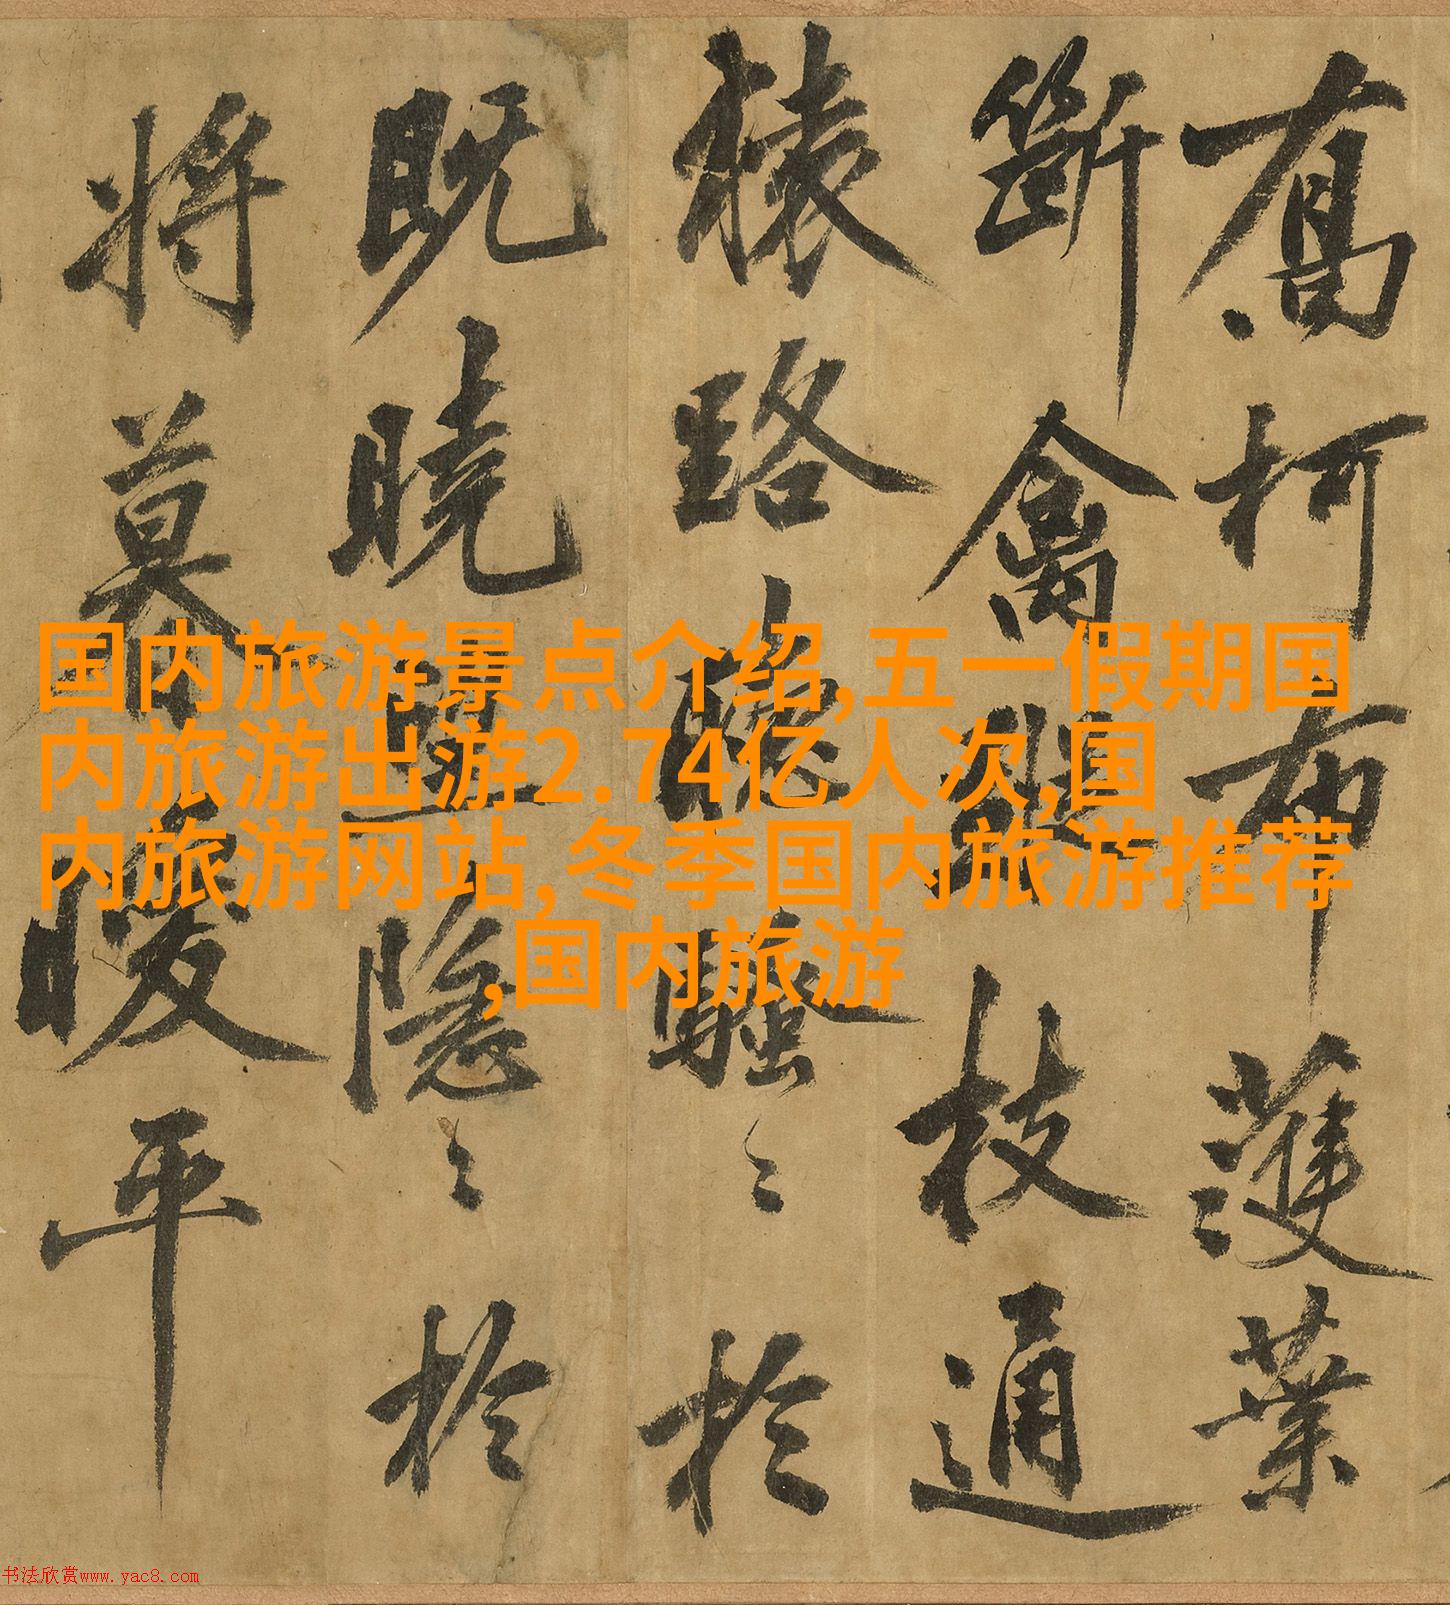 喬柯布濩葉
斷禽枝通
猿路聽騷〻於
既曉望隱〻於
將暮曖平
国内旅游景点介绍,五一假期国
内旅游出游2.74亿人次,国
内旅游网站,冬季国内旅游推荐
,国内旅游
书法欣赏www.yac8.com